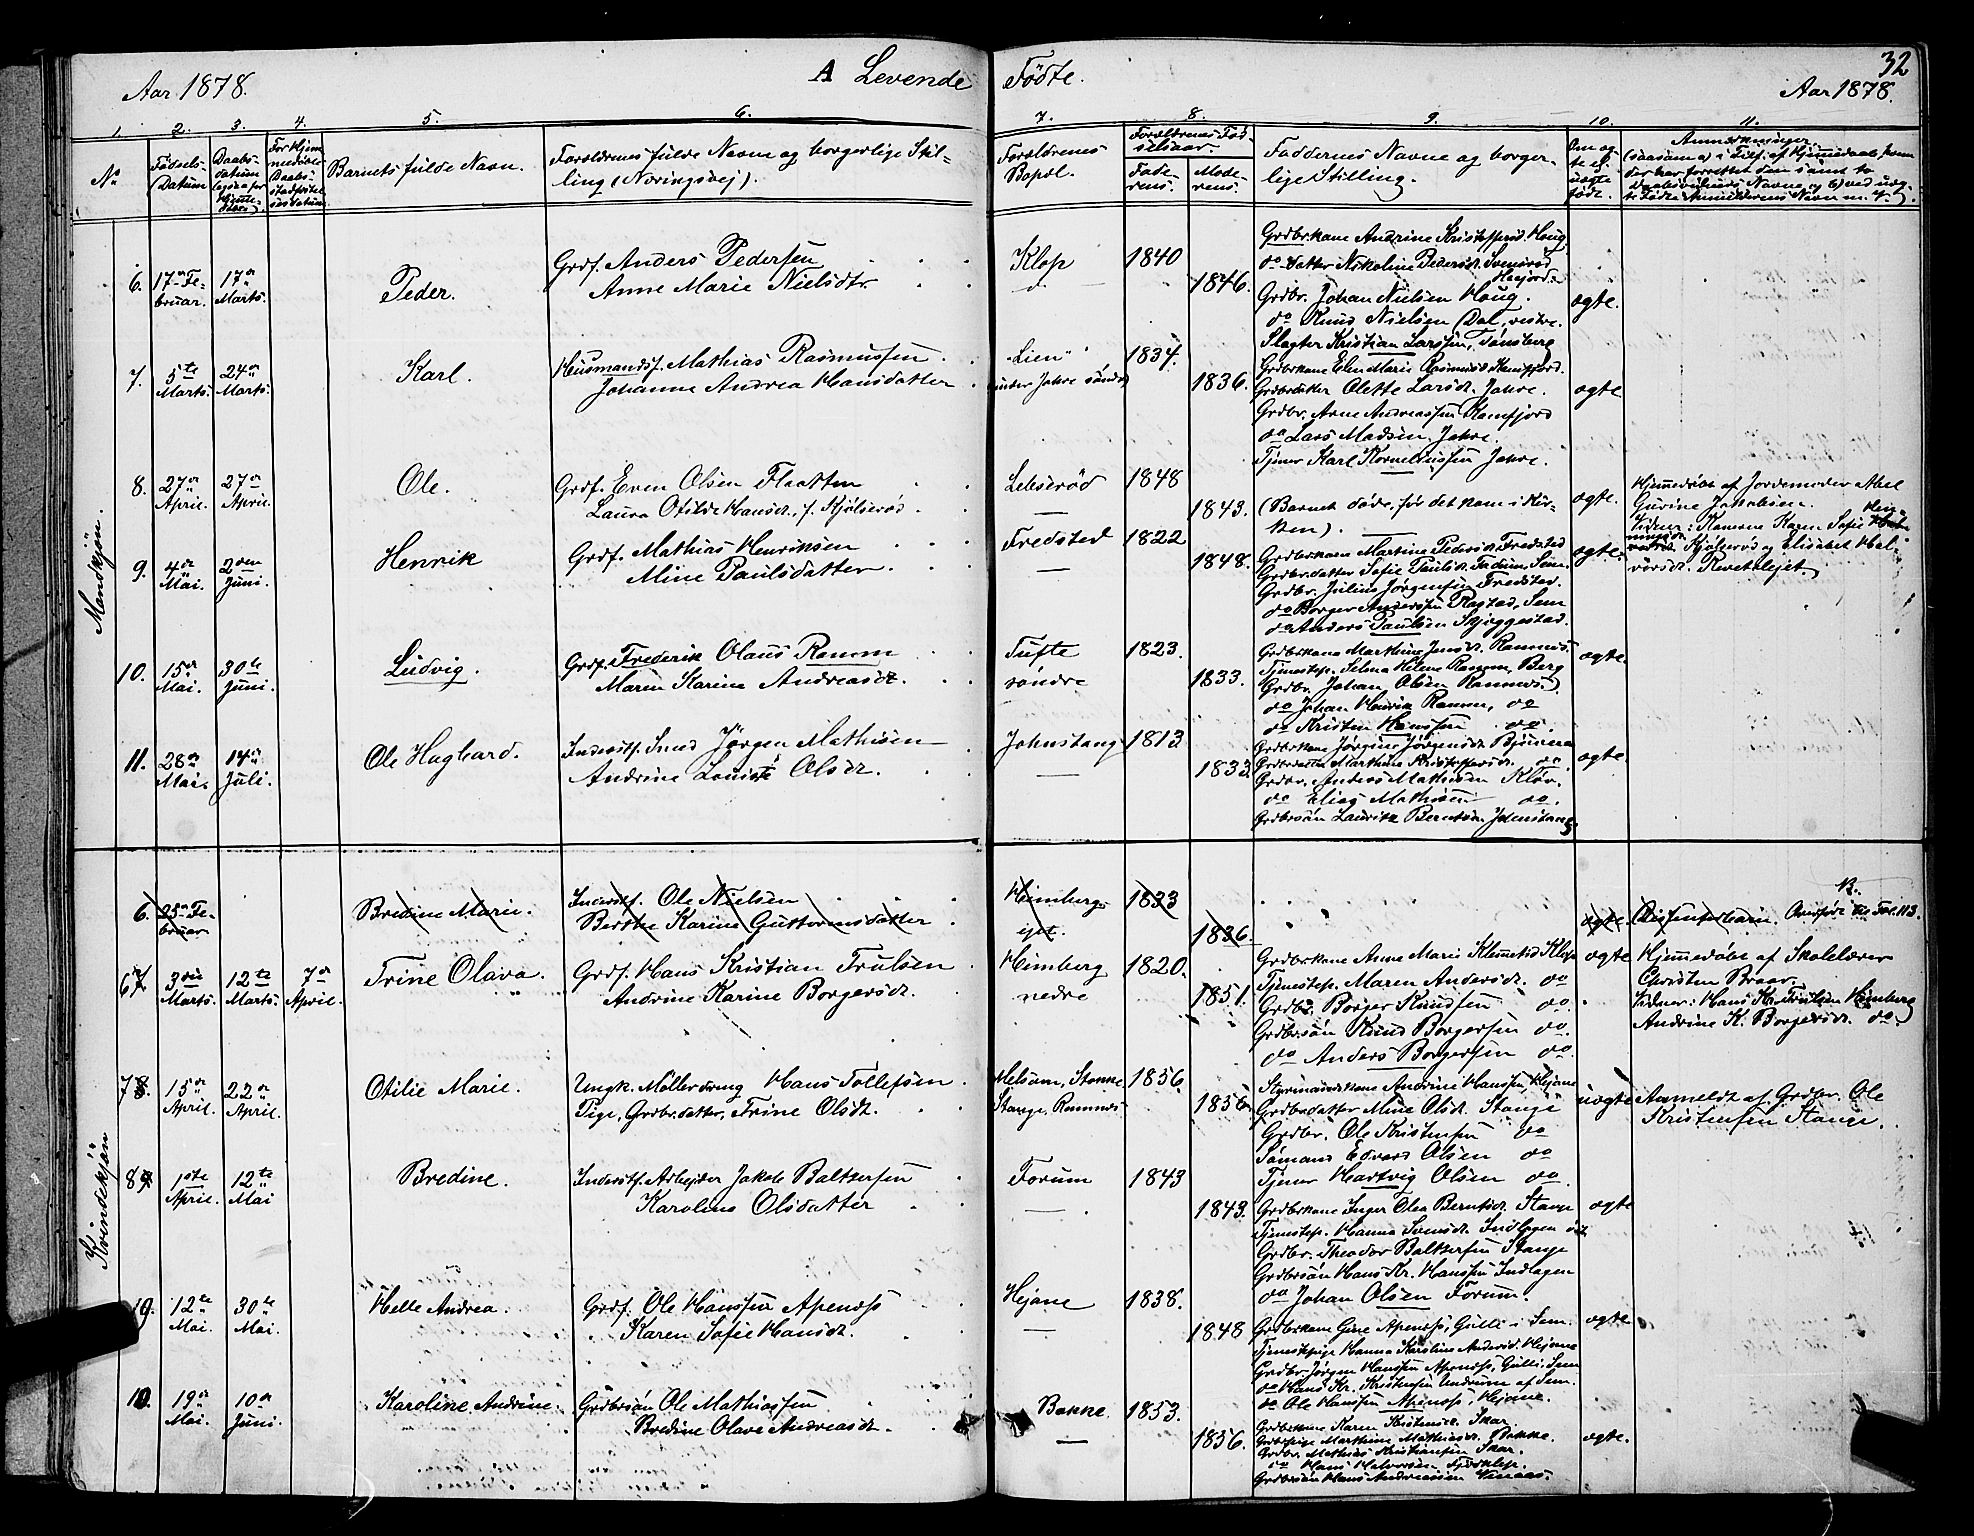 32
Aar 1878.
A Levende Födte.
Aar 1878.
1. 2. 3. 4. 5. 6. 7. 8. 9. 10. 11.
No
Födsels-
Datum
Daabs-
datum
Barnets fulde Navn.
Forældrenes fulde Navne og borgerlige Stil-
ling (Næringsvej).
Forældrenes
Bopæl.
Forældrenes Föd-
selsaar.
Fade-
rens.
Mode-
rens.
Faddernes Navne og borger-
lige Stilling.
Om æg-
te el.
uægte
födt.
Anmærkninger
Mandkjön.
6. 17de Fe-
bruar.
17de
Marts.
Peder.
Grdf. Anders Pedersen
Anne Marie Nielsdtr.
Klop
1840
1846.
Grdbrkone Andrine Kristoffersd. Houg
do datter Nikoline Pedersdt.
Grdbr. Johan Nielsen Houg.
do Knud Nielsen Dal, vestre.
Slagter Kristian Larssen, Tønsberg
ægte.
7. 5te
Marts.
24de
Marts.
Karl.
Husmandsf. Mathias Rasmussen
Johanne Andrea Hansdatter
Lien
under Jahre söndre
1834.
1836.
Grdbrkone Elen Marie Rasmusdt.
Grdbrdatter Olette Larsdt. Jahre.
Grdbr. Arne Andreassen
do Lars Madsen, Jahre.
Tjener Karl Korneliussen Jahre.
ægte
8. 27de
April.
27de
April.
Ole.
Grdf. Even Olsen Flaatten
Laura Otilde Hansdt., f. Hjölseröd
Lebseröd
1848
1843.
(Barnet döde, för det kom i Kir-
ken).
ægte.
Hjemmedöbt af Jordemoder Abel
Gurine Jakobsen.
Vidner: Konerne Karen Sofie Hen-
ningsdt. Hjölseröd og Elisabet Hal-
vorsdt. Kvetolejet.
9. 4de
Mai.
2den
Juni.
Henrik
Grdf. Mathias Henriksen
Mine Paulsdatter
Fredsted
1822
1848.
Grdbrkone Martine Pedersdt. Fredsted
Grdbrdatter Sofie Paulsdt. Fadum, Sem.
Grdbr. Julius Jørgensen Fredsted.
do Borger Anderssen Ragstad, Sem
do Anders Paulsen Skjeggestad.
ægte.
10. 15de
Mai.
30te
Juni.
Ludvig.
Grdf. Frederik Olaus Ramm
Maren Karine Andreasdt.
Tufte
söndre
1823.
1833.
Grdbrkone Marthine Jensdt. Ramnæs.
Tjenestep. Selma Helene Ramm, Berg
Grdbr. Johan Olsen Ramnæs.
do Johan Henrik Ramm, do
do Kristen Hanssen do.
ægte.
11. 28de
Mai.
14de
Juli.
Ole Hagbard.
Inderstf. Smed Jörgen Mathisen
Andrine Louise Olsdt.
Johnstang
1813
1833
Grdbrkone Jörgine Jörgensdt.
Grdbrdatter Marthine Kristoffersdt. do.
Grdbr. Anders Mathisen Klöv.
do Elias Mathisen do.
Grdbrsön Lauritz Berntsen Johnstang.
ægte.
Kvindekjön
6. 25de Fe-
bruar
Bredine Marie.
Inderstf. Ole Nielsen
Berthe Karine Guttormsdatter
Himberg
1823
1836.
ægte.
Dissenterbarn. Overført til Fol. 113.
67 3die
Marts.
12te
Marts.
7de
April.
Trine Olava.
Grdf. Hans Kristian Trulsen
Andrine Karine Borgersdt.
Himberg
nedre
1820.
1851.
Grdbrkone Anne Marie Klemetsd. Klop
Tjenestep. Maren Andersdt. do
Grdbr. Borger Knudsen do.
Grdbrsön Knud Borgersen do.
do Anders Borgersen do.
ægte
Hjemmedöbt af Skolelærer
Christen Braar.
Vidner: Hans Kr. Trulsen Himberg
Andrine K. Borgersdt. do.
78. 15de
April.
22de
April.
Otilie Marie.
Ungk. Möllerdreng Hans Tollefsen
Pige, Grdbrdatter, Trine Olsdt.
Melsom, Stokke
Stange, Ramnæs
1856.
1856
Styrmandskone Andrine Hanssen, Hejane
Grdbrdatter Mine Olsdt. Stange
Grdbr. Ole Kristensen do
Sömand Edvard Olsen do
Tjener Hartvig Olsen do.
uægte
Anmeldt af Grdbr. Ole
Kristensen Stange.
89. 1ste
April.
12te
Mai
Bredine.
Inderstf. Arbejder Jakob Baltsersen
Karoline Olsdatter
Forum
1843
1843.
Grdbrkone Inger Olea Berntsdt. Stange
Tjenestep. Hanna Svensdt. Indlagen
Grdbr. Theodor Baltsersen Stange
Grdbrsön Hans Kr. Hanssen Indlagen
do Johan Olsen Forum.
ægte
9. 12te
Mai.
30te
Mai.
Helle Andrea.
Grdf. Ole Hanssen Apenæs
Karen Sofie Hansdt.
Hejane
1838.
1848
Grdbrkone Gine Apenæs, Gulli i Sem.
Tjenestepige Hanna Karoline Andersd. Hejane
Grdbr. Jörgen Hanssen Apenæs, Gulli, Sem
do Hans Kr. Kristensen Undrum af Sem.
do Ole Hanssen Apenæs, Hejane.
ægte
10. 19de
Mai.
10de
Juni.
Karoline Andrine.
Grdbrsön Ole Mathiassen
Bredine Olave Andreasdt.
Bakke
1853.
1856.
Grdbrkone Karen Kristensdt. Skar.
Grdbrpige Marthine Mathiasdt. Bakke.
Grdbr. Mathias Kristiansen Skar.
do Hans Halvorsen
Grdbrsön Hans Andreassen
ægte.